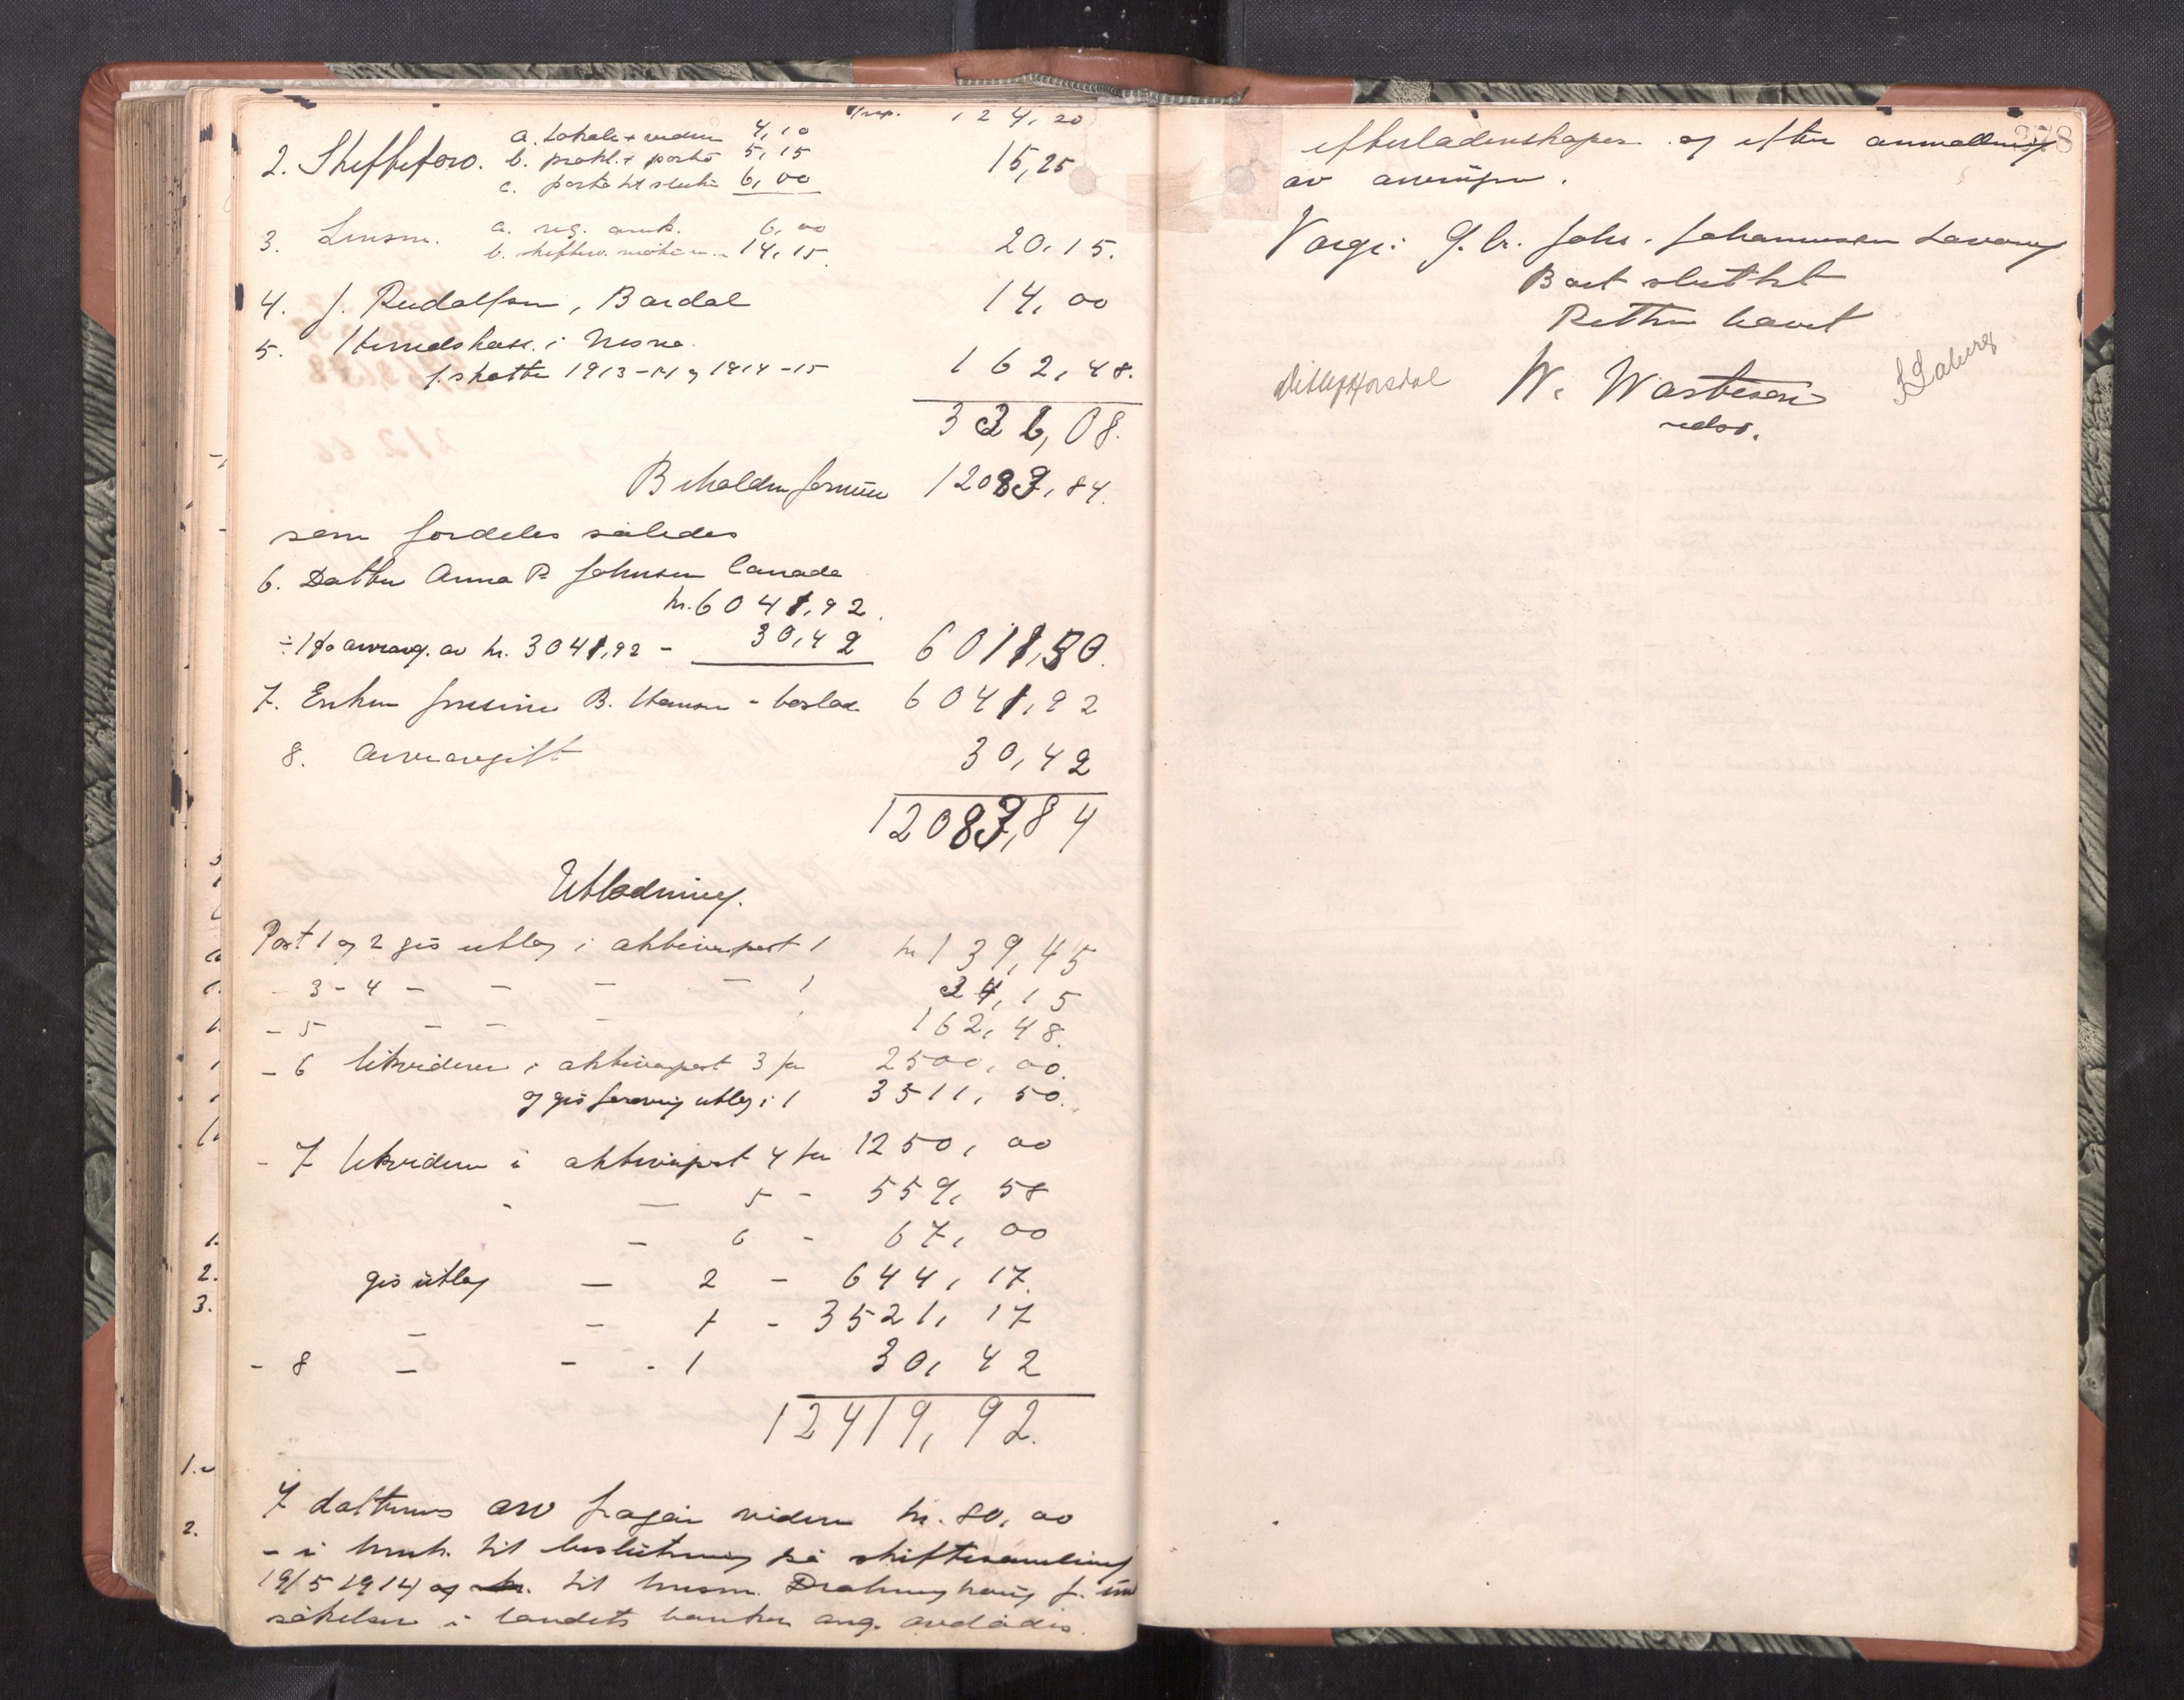 Trsp. 124,20
2. Skifteforv. a. lokale + vedm 4,10
b. prokl. + porto 5,15
c. porto til slutn 6,00 15,25
3. Lensm. a. reg. omk. 6,00
b. skifterv. møte m. 14,15 20,15.
4. J. Rudolfsen, Bardal 14,00
5. Herredskass. i Nesna
f. skatte 1913-14 og 1914-15 162,48.
336,08.
Beholden formue 12083,84.
som fordeles således
6. Datter Anna P. Johnsen Canada
kr. 6041,92.
÷ 1% arveavg. av kr. 3041,92 - 30,42 6011,50.
7. Enken Jensine B. Hansen - boslod 6041,92
8. Arveavgift 30,42
12083,84
Utlodning.
Post 1 og 2 gis utlæg i aktivapost 1 kr 139,45
- 3 - 4 - - - - 1 34,15
- 5 - - - 162,48.
- 6 likvideres i aktivapost 3 før 2500,00.
og gis forøvrig utlæg i 1 3511,50.
- 7 likvideres i aktivapost 4 før 1250,00
- - 5 - 559,58
- 6 - 67,00
gis utlæg - 2 - 644,17.
- - 1 - 3521,17
- 8 - - - 1 30,42
12419,92.
I datterens arv fragår videre kr. 80,00
- i henh. til beslutning på skiftesamling
19/5 1914 og til lensm. f. un
søkelser i landets banker ang. avdødes
378
efterladenskaper og efter anmeldning
av arvinger.
Varge: J. Chr. Johs. Johannessen Lavong
Boet sluttet
Retten hævet
W. Wasteson
edsv.